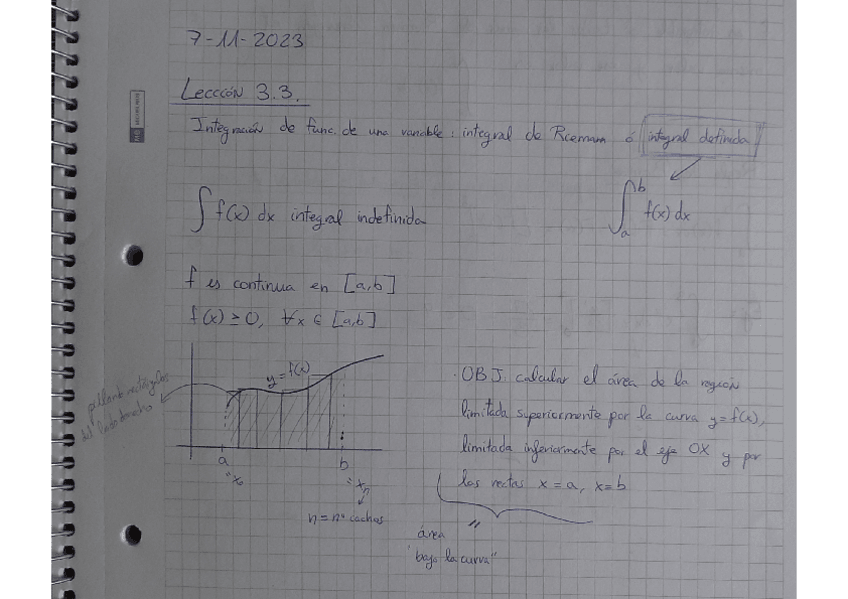 7-11-2023
Leccción 3.3.
Integración de func. de una variable: integral de Riemann ó integral definida
∫ f(x) dx integral indefinida
∫_a^b f(x) dx
f es continua en [a,b]
f(x) ≥ 0, ∀x ∈ [a,b]
y = f(x)
pillando rectángulos
del lado derecho
a
b
= x₀
= xₙ
n = nº cachos
· OBJ calcular el área de la región
limitada superiormente por la curva y = f(x),
limitada inferiormente por el eje OX y por
las rectas x = a, x = b
área
"bajo la curva"